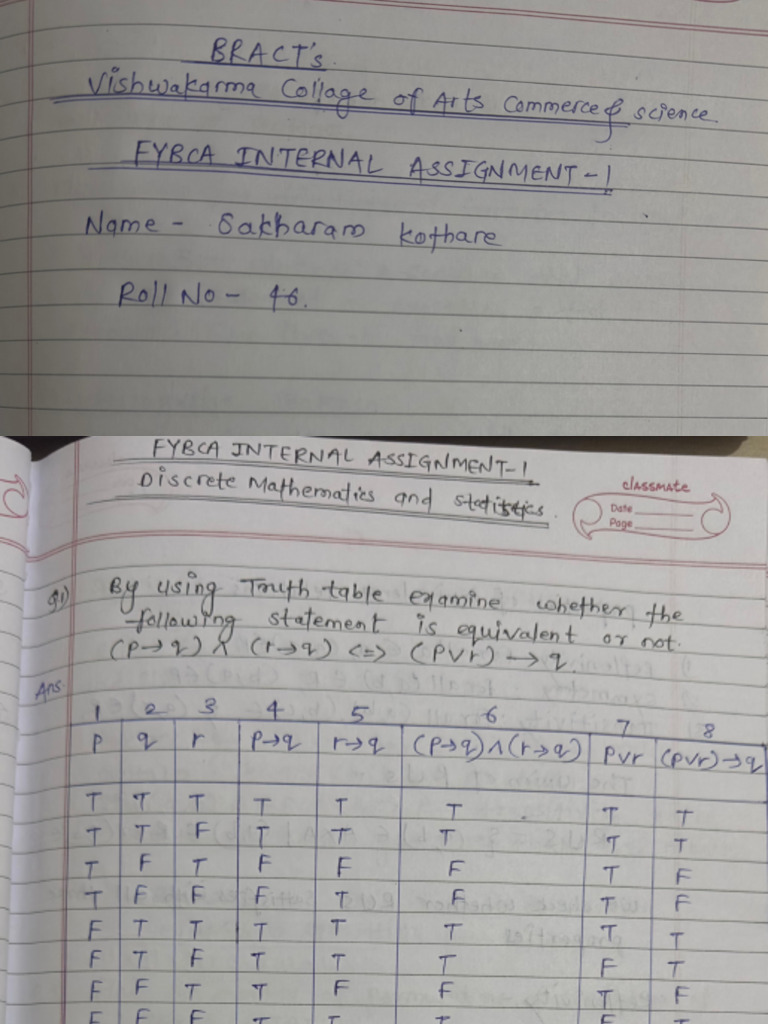 BRACT's
Vishwakarma Collage of Arts Commerce & science
FYBCA INTERNAL ASSIGNMENT-1
Name - Sakharam Kothare
Roll No - 46.
FYBCA INTERNAL ASSIGNMENT-1
Discrete Mathematics and statistics.
classmate
Date
Page
Q1) By using Truth table examine whether the
following statement is equivalent or not.
(P→q) ∧ (r→q) <=> (PVr) → q
Ans
1 2 3 4 5 6 7 8
P q r P→q r→q (P→q)∧(r→q) PVr (PVr)→q
T T T T T T T T
T T F T T T T T
T F T F F F T F
T F F F T F T F
F T T T T T T T
F T F T T T F T
F F T T F F T F
F F F T T T F T